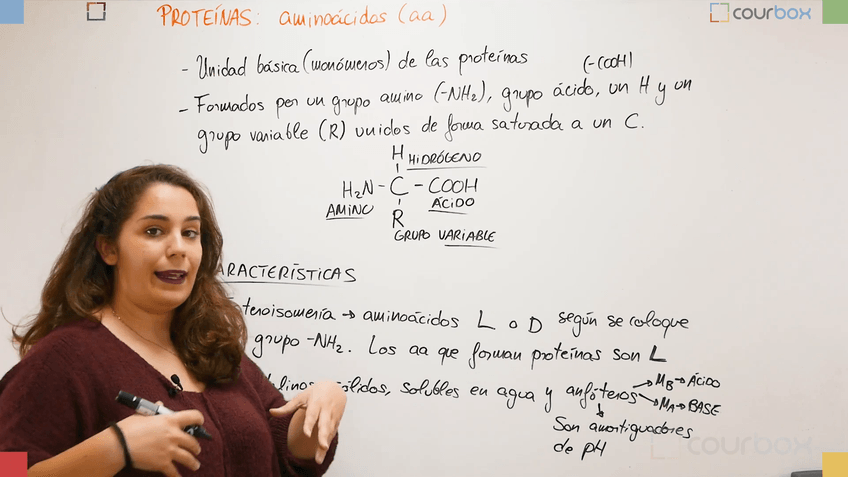 PROTEÍNAS: aminoácidos (aa)
courbox
- Unidad básica (monómeros) de las proteínas
(-COOH)
- Formados por un grupo amino (-NH₂), grupo ácido, un H y un
grupo variable (R) unidos de forma saturada a un C.
H HIDRÓGENO
H₂N - C - COOH
AMINO ÁCIDO
R
GRUPO VARIABLE
ARACTERÍSTICAS
teroisomería → aminoácidos L o D según se coloque
grupo -NH₂. Los aa que forman proteínas son L
linos, sólidos, solubles en agua y anfóteros → MB → ÁCIDO
→ MA → BASE
Son amortiguadores
de pH
courbox